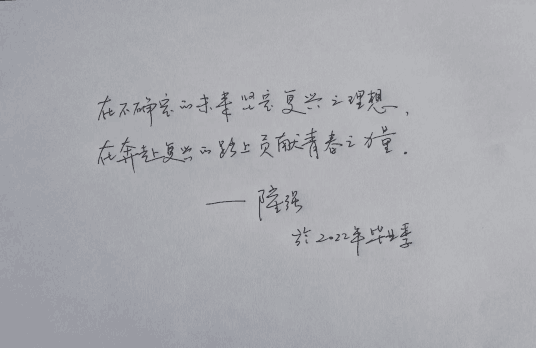 在不确定的未来坚定复兴之理想，
在奔赴复兴的路上贡献青春之力量。
——隆强
于2022年毕业季